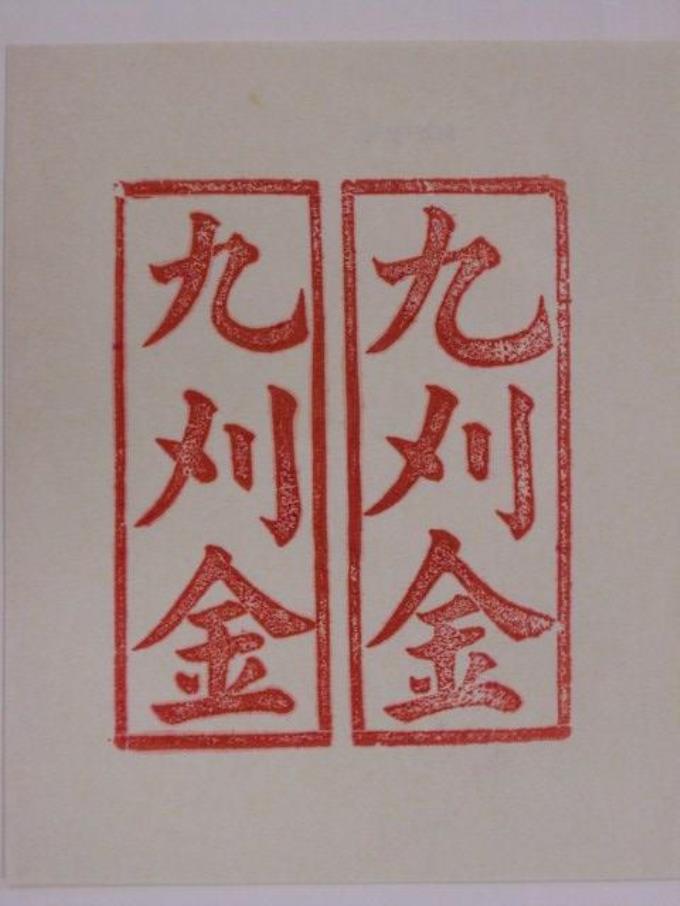 九刈金
九刈金